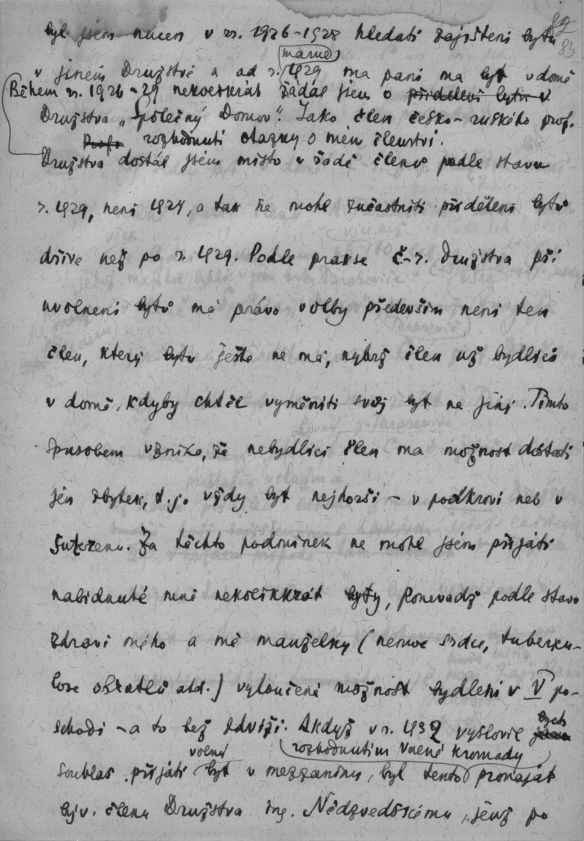 89
85
byl jsem nucen v rr. 1926-1928 hledati zajištění bytu
v jiném Družstvě a od r. 1929 má paní má byt v domě
marně
Během rr. 1926-29 nekolikrát žádal jsem o přidělení bytu v
Družstva „Společný Domov". Jako člen česko-ruského prof.
rozhodnutí otázky o mém členství.
Družstva dostal jsem místo v řadě členů podle stavu
r. 1929, není 1924, a tak ne mohl zúčastniti přidělení bytů
dříve než po r. 1929. Podle prakse Č-r. Družstva při
uvolnění bytů má právo volby především není ten
člen, který bytu ješte ne má, nybrž člen už bydlící
v domě, kdyby chtěl vyměniti svůj byt na jiný. Tímto
způsobem vzniká, že nebydlící člen má možnost dostati
jen zbytek, t.j. vždy byt nejhorší – v podkroví neb v
Suterenu. Za těchto podmínek ne mohl jsem přijáti
nabídnuté mně nekolikkrát byty, Ponevadž podle stavu
zdraví mého a mé manželky (nerwe srdce, tuberku-
lose obratlů atd.) vyloučená možnost bydlení v V po-
schodí – a to bez zdviži. A když v r. 1932 vyslovil jsem
bych
rozhodnutím Valné hromady
souhlas přijáti volný byt v mezzaninu, byl tento pronaját
býv. členu Družstva ing. Nědzvedskému, jenž po